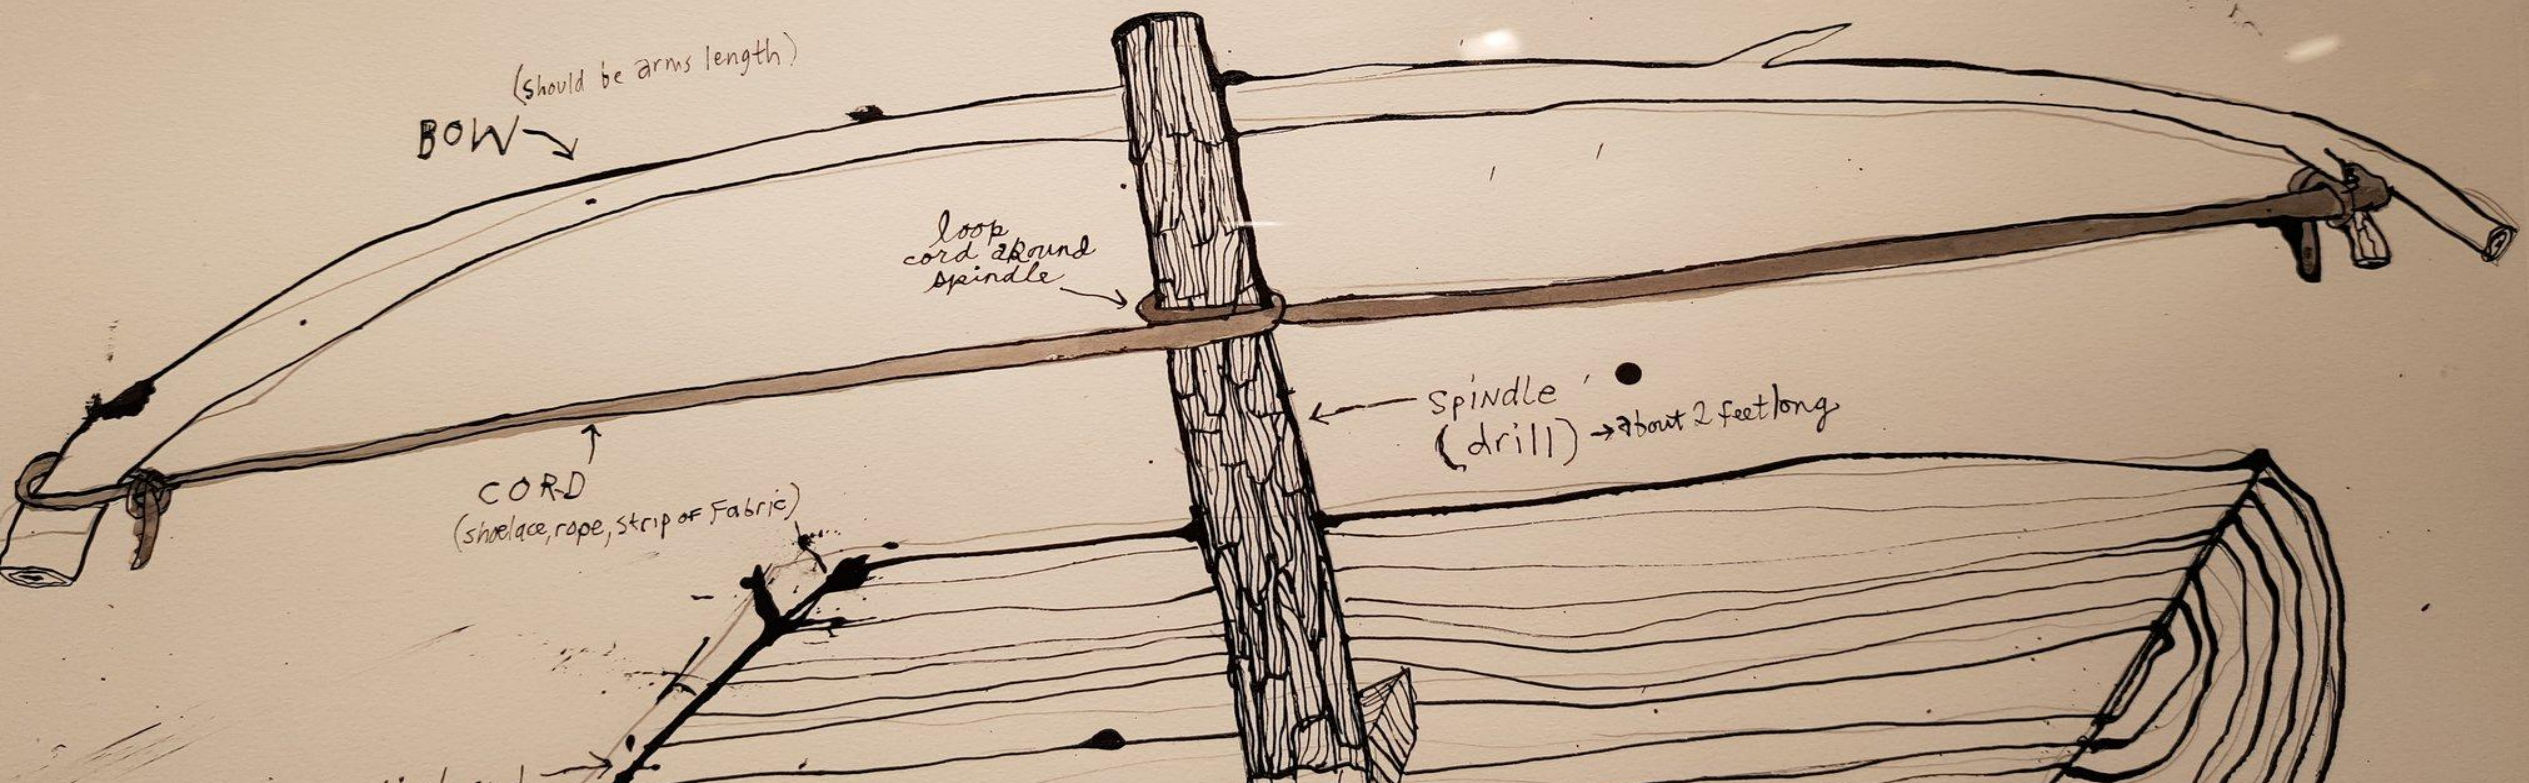 (should be arms length)
BOW
loop
cord around
spindle
SPINDLE
(drill) → about 2 feet long
CORD
(shoelace, rope, strip of Fabric)